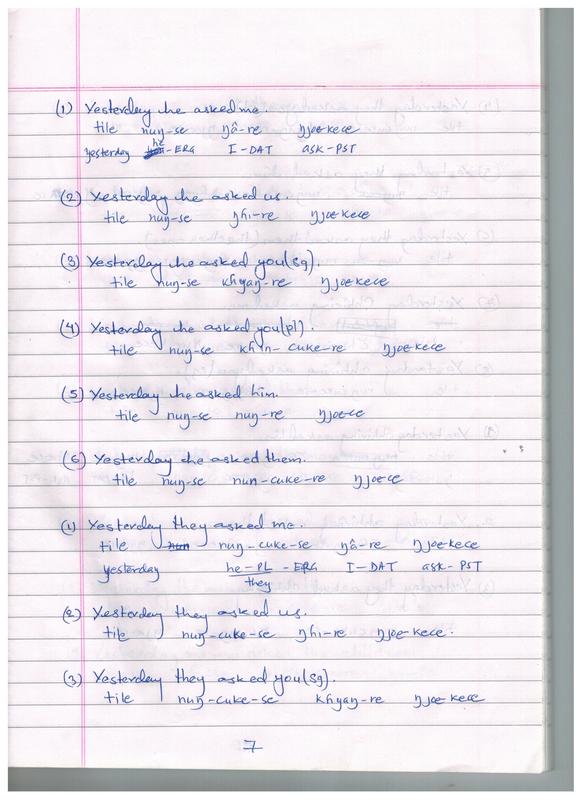 (1) Yesterday he asked me.
tile nuŋ-se ŋâ-re ŋjoe-kece
yesterday he-ERG I-DAT ask-PST
(2) Yesterday he asked us.
tile nuŋ-se ŋhi-re ŋjoe-kece
(3) Yesterday he asked you(sg).
tile nuŋ-se khyaŋ-re ŋjoe-kece
(4) Yesterday he asked you(pl).
tile nuŋ-se khin-cuke-re ŋjoe-kece
(5) Yesterday he asked him.
tile nuŋ-se nuŋ-re ŋjoe-ce
(6) Yesterday he asked them.
tile nuŋ-se nuŋ-cuke-re ŋjoe-ce
(1) Yesterday they asked me.
tile nuŋ-cuke-se ŋâ-re ŋjoe-kece
yesterday he-PL-ERG I-DAT ask-PST
they
(2) Yesterday they asked us.
tile nuŋ-cuke-se ŋhi-re ŋjoe-kece.
(3) Yesterday they asked you(sg).
tile nuŋ-cuke-se khyaŋ-re ŋjoe-kece
7